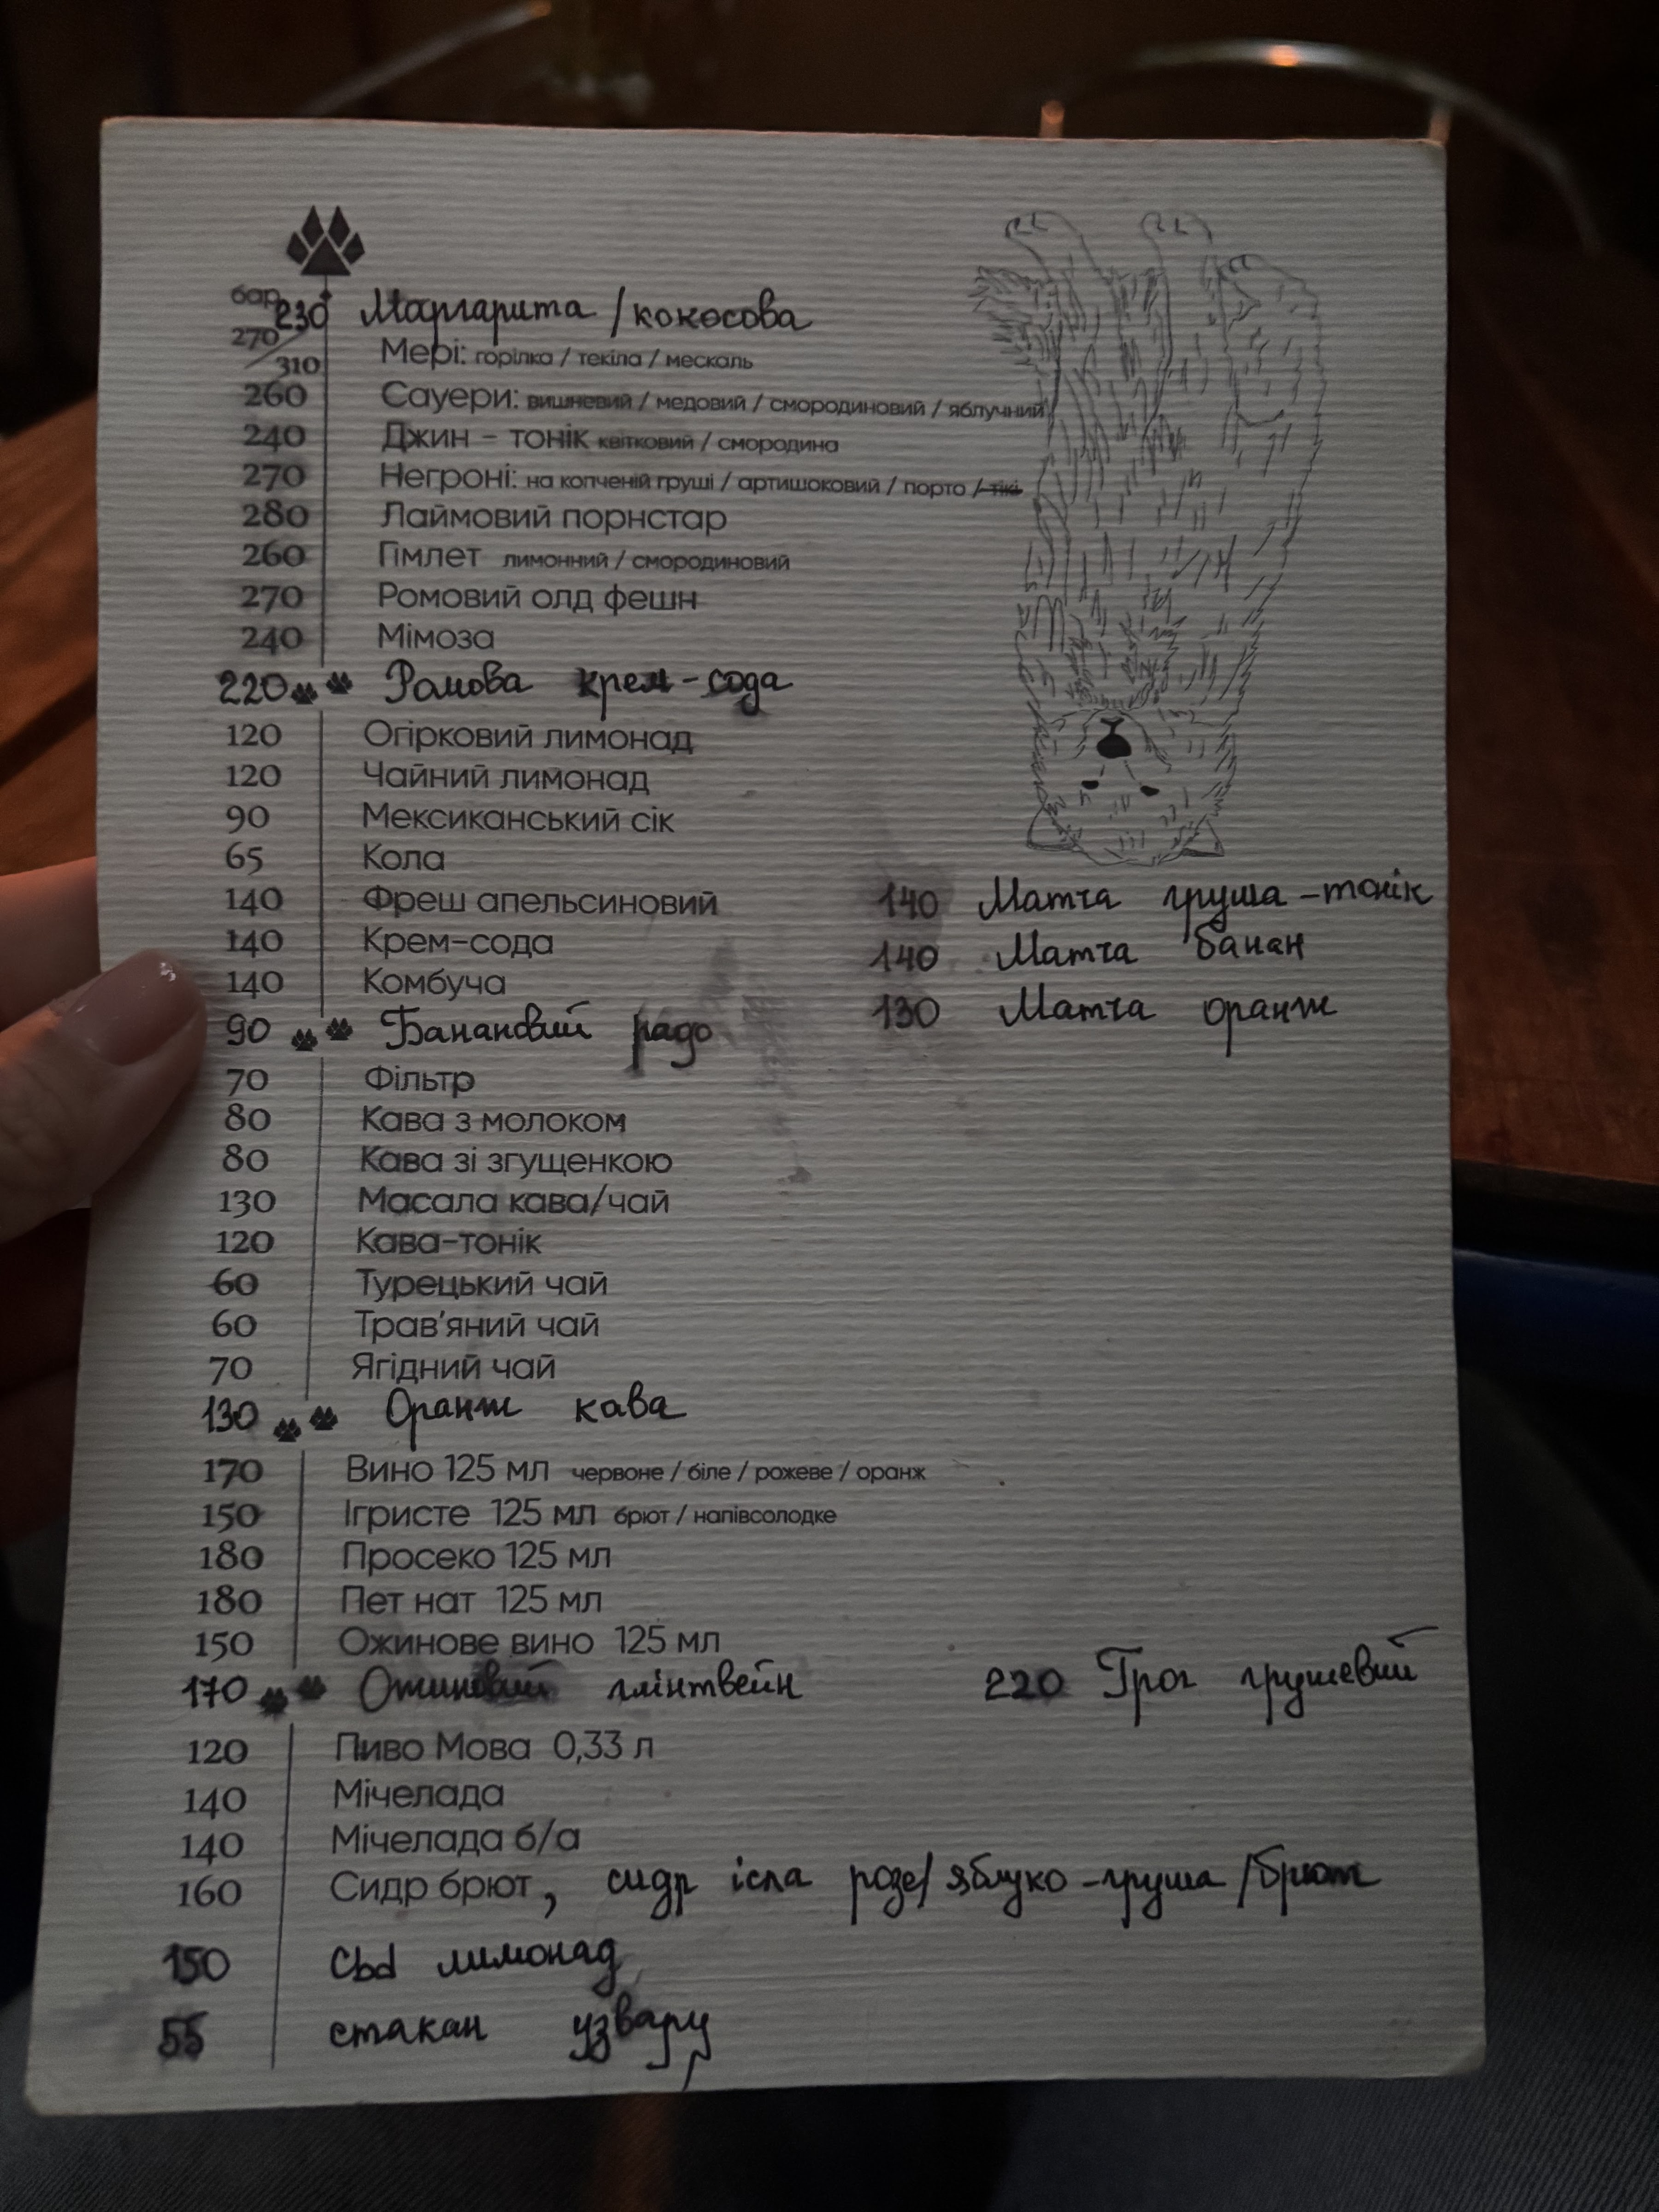 бар
230 Маргарита / кокосова
270/310 Мері: горілка / текіла / мескаль
260 Сауери: вишневий / медовий / смородиновий / яблучний
240 Джин – тонік квітковий / смородина
270 Негроні: на копченій груші / артишоковий / порто / тікі
280 Лаймовий порнстар
260 Гімлет лимонний / смородиновий
270 Ромовий олд фешн
240 Мімоза
220 Ромова крем-сода
120 Огірковий лимонад
120 Чайний лимонад
90 Мексиканський сік
65 Кола
140 Фреш апельсиновий
140 Крем-сода
140 Комбуча
140 Матча груша-тонік
140 Матча банан
130 Матча оранж
90 Банановий радо
70 Фільтр
80 Кава з молоком
80 Кава зі згущенкою
130 Масала кава/чай
120 Кава-тонік
60 Турецький чай
60 Трав'яний чай
70 Ягідний чай
130 Оранж кава
170 Вино 125 мл червоне / біле / рожеве / оранж
150 Ігристе 125 мл брют / напівсолодке
180 Просеко 125 мл
180 Пет нат 125 мл
150 Ожинове вино 125 мл
170 Ожиновий глінтвейн
220 Грог грушевий
120 Пиво Мова 0,33 л
140 Мічелада
140 Мічелада б/а
160 Сидр брют, сидр ісла розе / яблуко-груша / брют
150 Cbd лимонад
55 стакан узвару